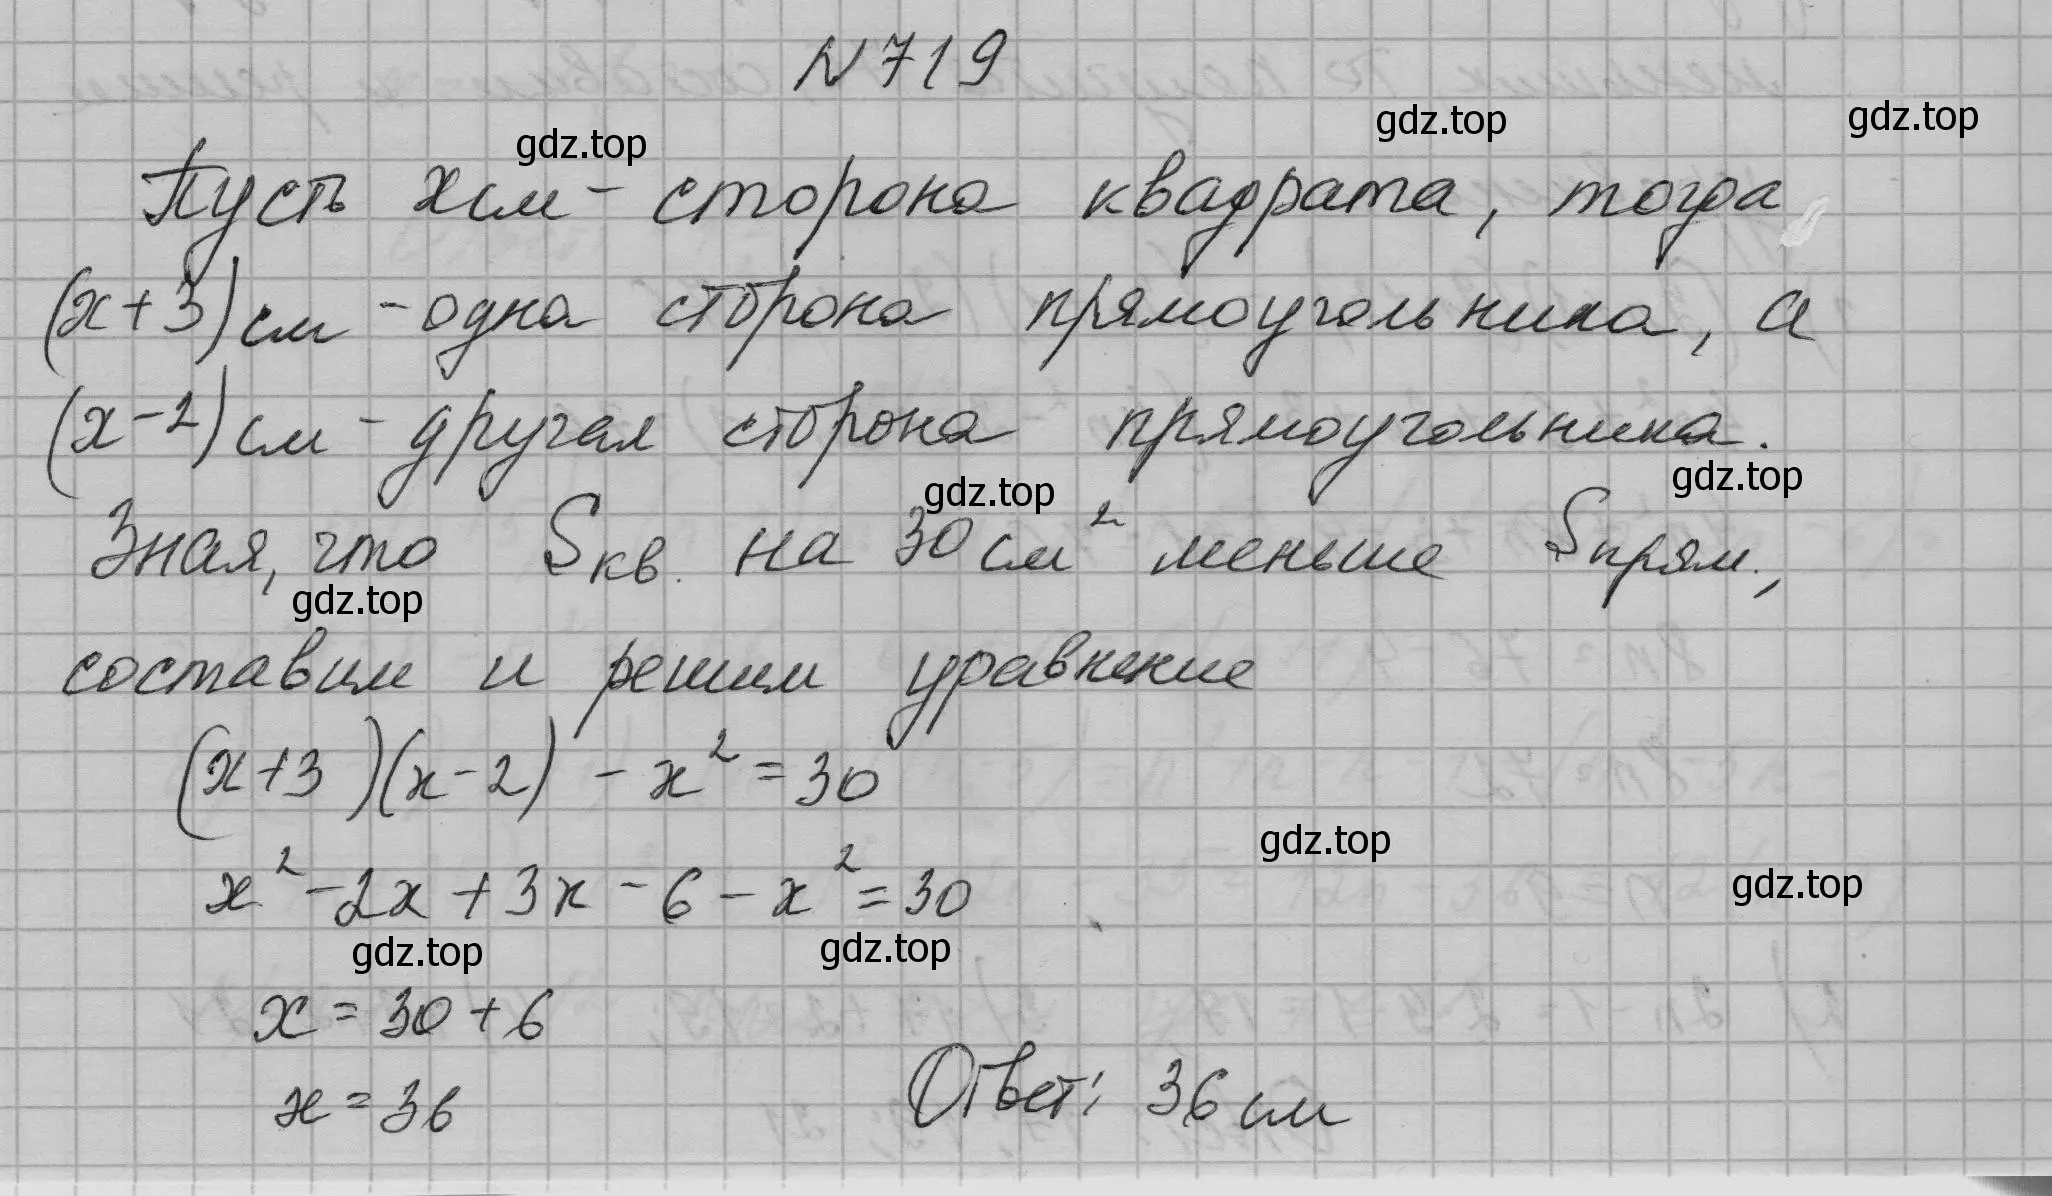 N719
gdz.top gdz.top gdz.top
Пусть x см - сторона квадрата, тогда
(x+3) см - одна сторона прямоугольника, а
(x-2) см - другая сторона прямоугольника.
gdz.top gdz.top
Зная, что Sкв. на 30 см² меньше Sпрям.,
gdz.top
составим и решим уравнение
(x+3)(x-2) - x² = 30
gdz.top
x² - 2x + 3x - 6 - x² = 30
gdz.top
gdz.top gdz.top
x = 30 + 6
x = 36
Ответ: 36 см